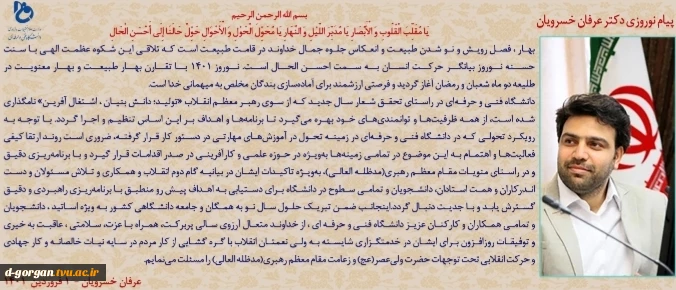 پیام نوروزی دکتر عرفان خسرویان
بسم الله الرحمن الرحیم
یَا مُقَلِّبَ الْقُلُوبِ وَ الْأَبْصَارِ یَا مُدَبِّرَ اللَّیْلِ وَ النَّهَارِ یَا مُحَوِّلَ الْحَوْلِ وَ الْأَحْوَالِ حَوِّلْ حَالَنَا إِلَى أَحْسَنِ الْحَالِ
بهار ، فصل رویش و نو شدن طبیعت و انعکاس جلوه جمال خداوند در قامت طبیعت است که تلاقی این شکوه عظمت الهی با سنت
حسنه نوروز بیانگر حرکت انسان به سمت احسن الحال است. نوروز ۱۴۰۱ با تقارن بهار طبیعت و بهار معنویت در
طلیعه دو ماه شعبان و رمضان آغاز گردید و فرصتی ارزشمند برای آماده‌سازی بندگان مخلص به میهمانی خدا است.
دانشگاه فنی و حرفه‌ای در راستای تحقق شعار سال جدید که از سوی رهبر معظم انقلاب «تولید؛ دانش بنیان ، اشتغال آفرین» نامگذاری
شده است، از همه ظرفیت‌ها و توانمندی‌های خود بهره می‌گیرد تا برنامه‌ها و اهداف بر این اساس تنظیم و اجرا گردد. با توجه به
رویکرد تحولی که در دانشگاه فنی و حرفه‌ای در زمینه تحول در آموزش‌های مهارتی در دستور کار قرار گرفته، ضروری است روند ارتقا کیفی
فعالیت‌ها و اهتمام به این موضوع در تمامی زمینه‌ها به‌ویژه در حوزه علمی و کارآفرینی در صدر اقدامات قرار گیرد و با برنامه‌ریزی دقیق
و در راستای منویات مقام معظم رهبری(مدظله العالی)، به‌ویژه تاکیدات ایشان در بیانیه گام دوم انقلاب و همکاری و تلاش مسئولان و دست
اندرکاران و همت استادان، دانشجویان و تمامی سطوح در دانشگاه برای دستیابی به اهداف پیش رو منطبق با برنامه‌ریزی راهبردی و دقیق
گسترش یابد و با جدیت دنبال گردد.اینجانب ضمن تبریک حلول سال نو به همگان و جامعه دانشگاهی کشور به ویژه اساتید ، دانشجویان
و تمامی همکاران و کارکنان عزیز دانشگاه فنی و حرفه ای ، از خداوند متعال آرزوی سالی پربرکت، همراه با عزت، سلامتی ، عاقبت به خیری
و توفیقات روزافزون برای ایشان در خدمتگزاری شایسته به ولی نعمتان انقلاب با گره گشایی از کار مردم در سایه نیات خالصانه و کار جهادی
و حرکت انقلابی تحت توجهات حضرت ولی‌عصر(عج) و زعامت مقام معظم رهبری(مدظله العالی) را مسئلت می‌نمایم.
عرفان خسرویان - ۱ فروردین ۱۴۰۱
d-gorgan.tvu.ac.ir